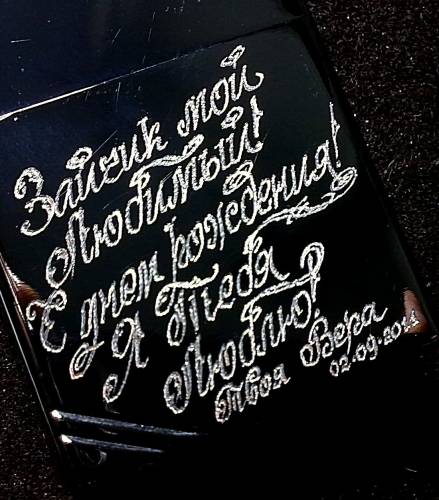 Зайчик мой
Любимый!
С днем рождения!
Я Тебя
Люблю!
Твоя Вера
02.09.2011